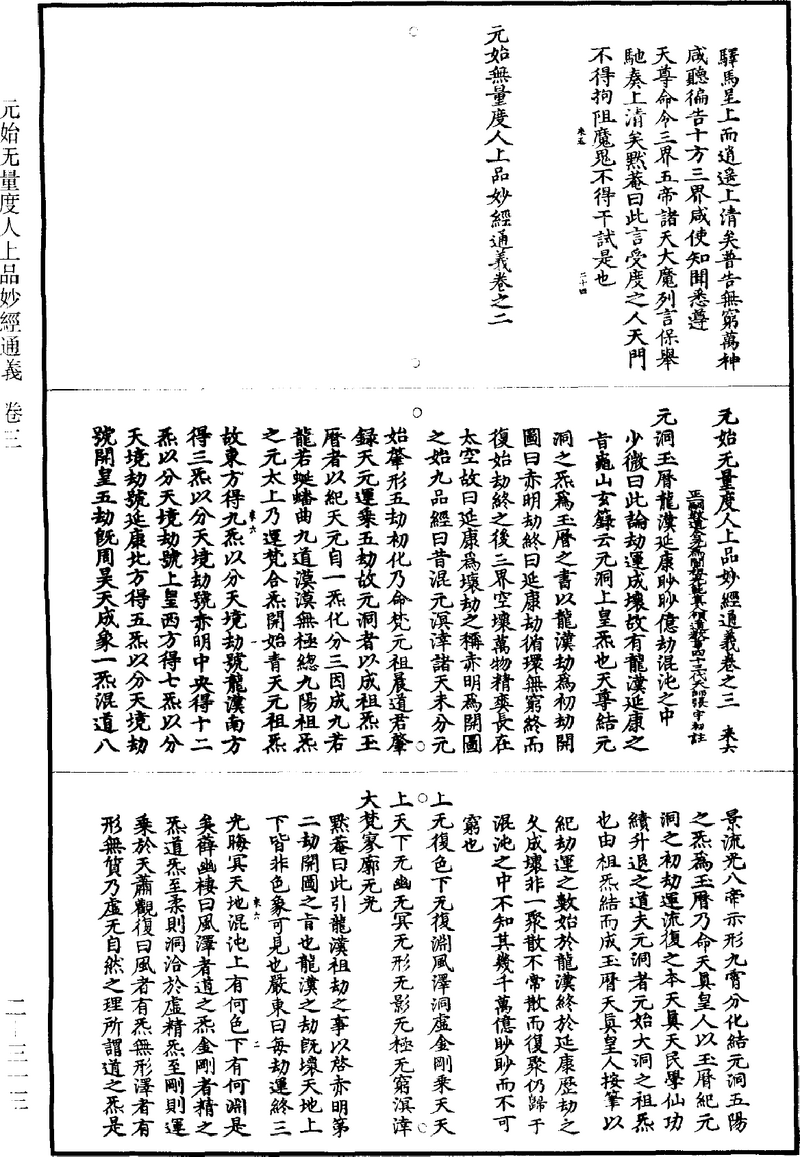 驛馬呈上而逍遙上清矣普告無窮萬神
咸聽徧告十方三界咸使知聞悉遵
天尊命令三界五帝諸天大魔列言保舉
馳奏上清矣默菴曰此言受度之人天門
不得拘阻魔鬼不得干試是也
來五
二十四
元始無量度人上品妙經通義卷之二
元始无量度人上品妙經通義卷之三
來六
四十三代天師張宇初註
元洞玉曆龍漢延康眇眇億劫混沌之中
少微曰此論劫運成壞故有龍漢延康之
旨龜山玄籙云元洞上皇炁也天尊結元
洞之炁為玉曆之書以龍漢劫為初劫開
圖曰赤明劫終曰延康劫循環無窮終而
復始劫終之後三界空壞萬物精爽長在
太空故曰延康為壞劫之稱赤明為開圖
之始九品經曰昔混元溟涬諸天未分元
始肇形五劫初化乃命梵元祖晨道君肇
録天元運乘五劫故元洞者以成祖炁玉
曆者以紀天元自一炁化分三因成九若
龍若蜒蟠曲九道漠漠無極總九陽祖炁
之元太上乃運梵合炁開始青天元祖炁
來六
一
故東方得九炁以分天境劫號龍漢南方
得三炁以分天境劫號赤明中央得十二
炁以分天境劫號上皇西方得七炁以分
天境劫號延康北方得五炁以分天境劫
號開皇五劫既周昊天成象一炁混道八
景流光八帝示形九霄分化結元洞五陽
之炁為玉曆乃命天真皇人以玉曆紀元
洞之初劫運流復之本天真天民學仙功
績升退之道夫元洞者元始大洞之祖炁
也由祖炁結而成玉曆天真皇人按筆以
紀劫運之數始於龍漢終於延康歷劫之
久成壞非一聚散不常散而復聚仍歸于
混沌之中不知其幾千萬億眇眇而不可
窮也
上无復色下无復淵風澤洞虛金剛乘天天
上天下无幽无冥无形无影无極无窮溟涬
大梵寥廓无光
默菴曰此引龍漢祖劫之事以啓赤明第
二劫開圖之旨也龍漢之劫既壞天地上
下皆非色象可見也嚴東曰每劫運終三
來六
二
光晦冥天地混沌上有何色下有何淵是
矣薛幽棲曰風澤者道之炁金剛者精之
炁道炁至柔則洞洽於虛精炁至剛則運
乘於天蕭觀復曰風者有炁無形澤者有
形無質乃虛无自然之理所謂道之炁是
元始无量度人上品妙經通義　卷三
二—三一三